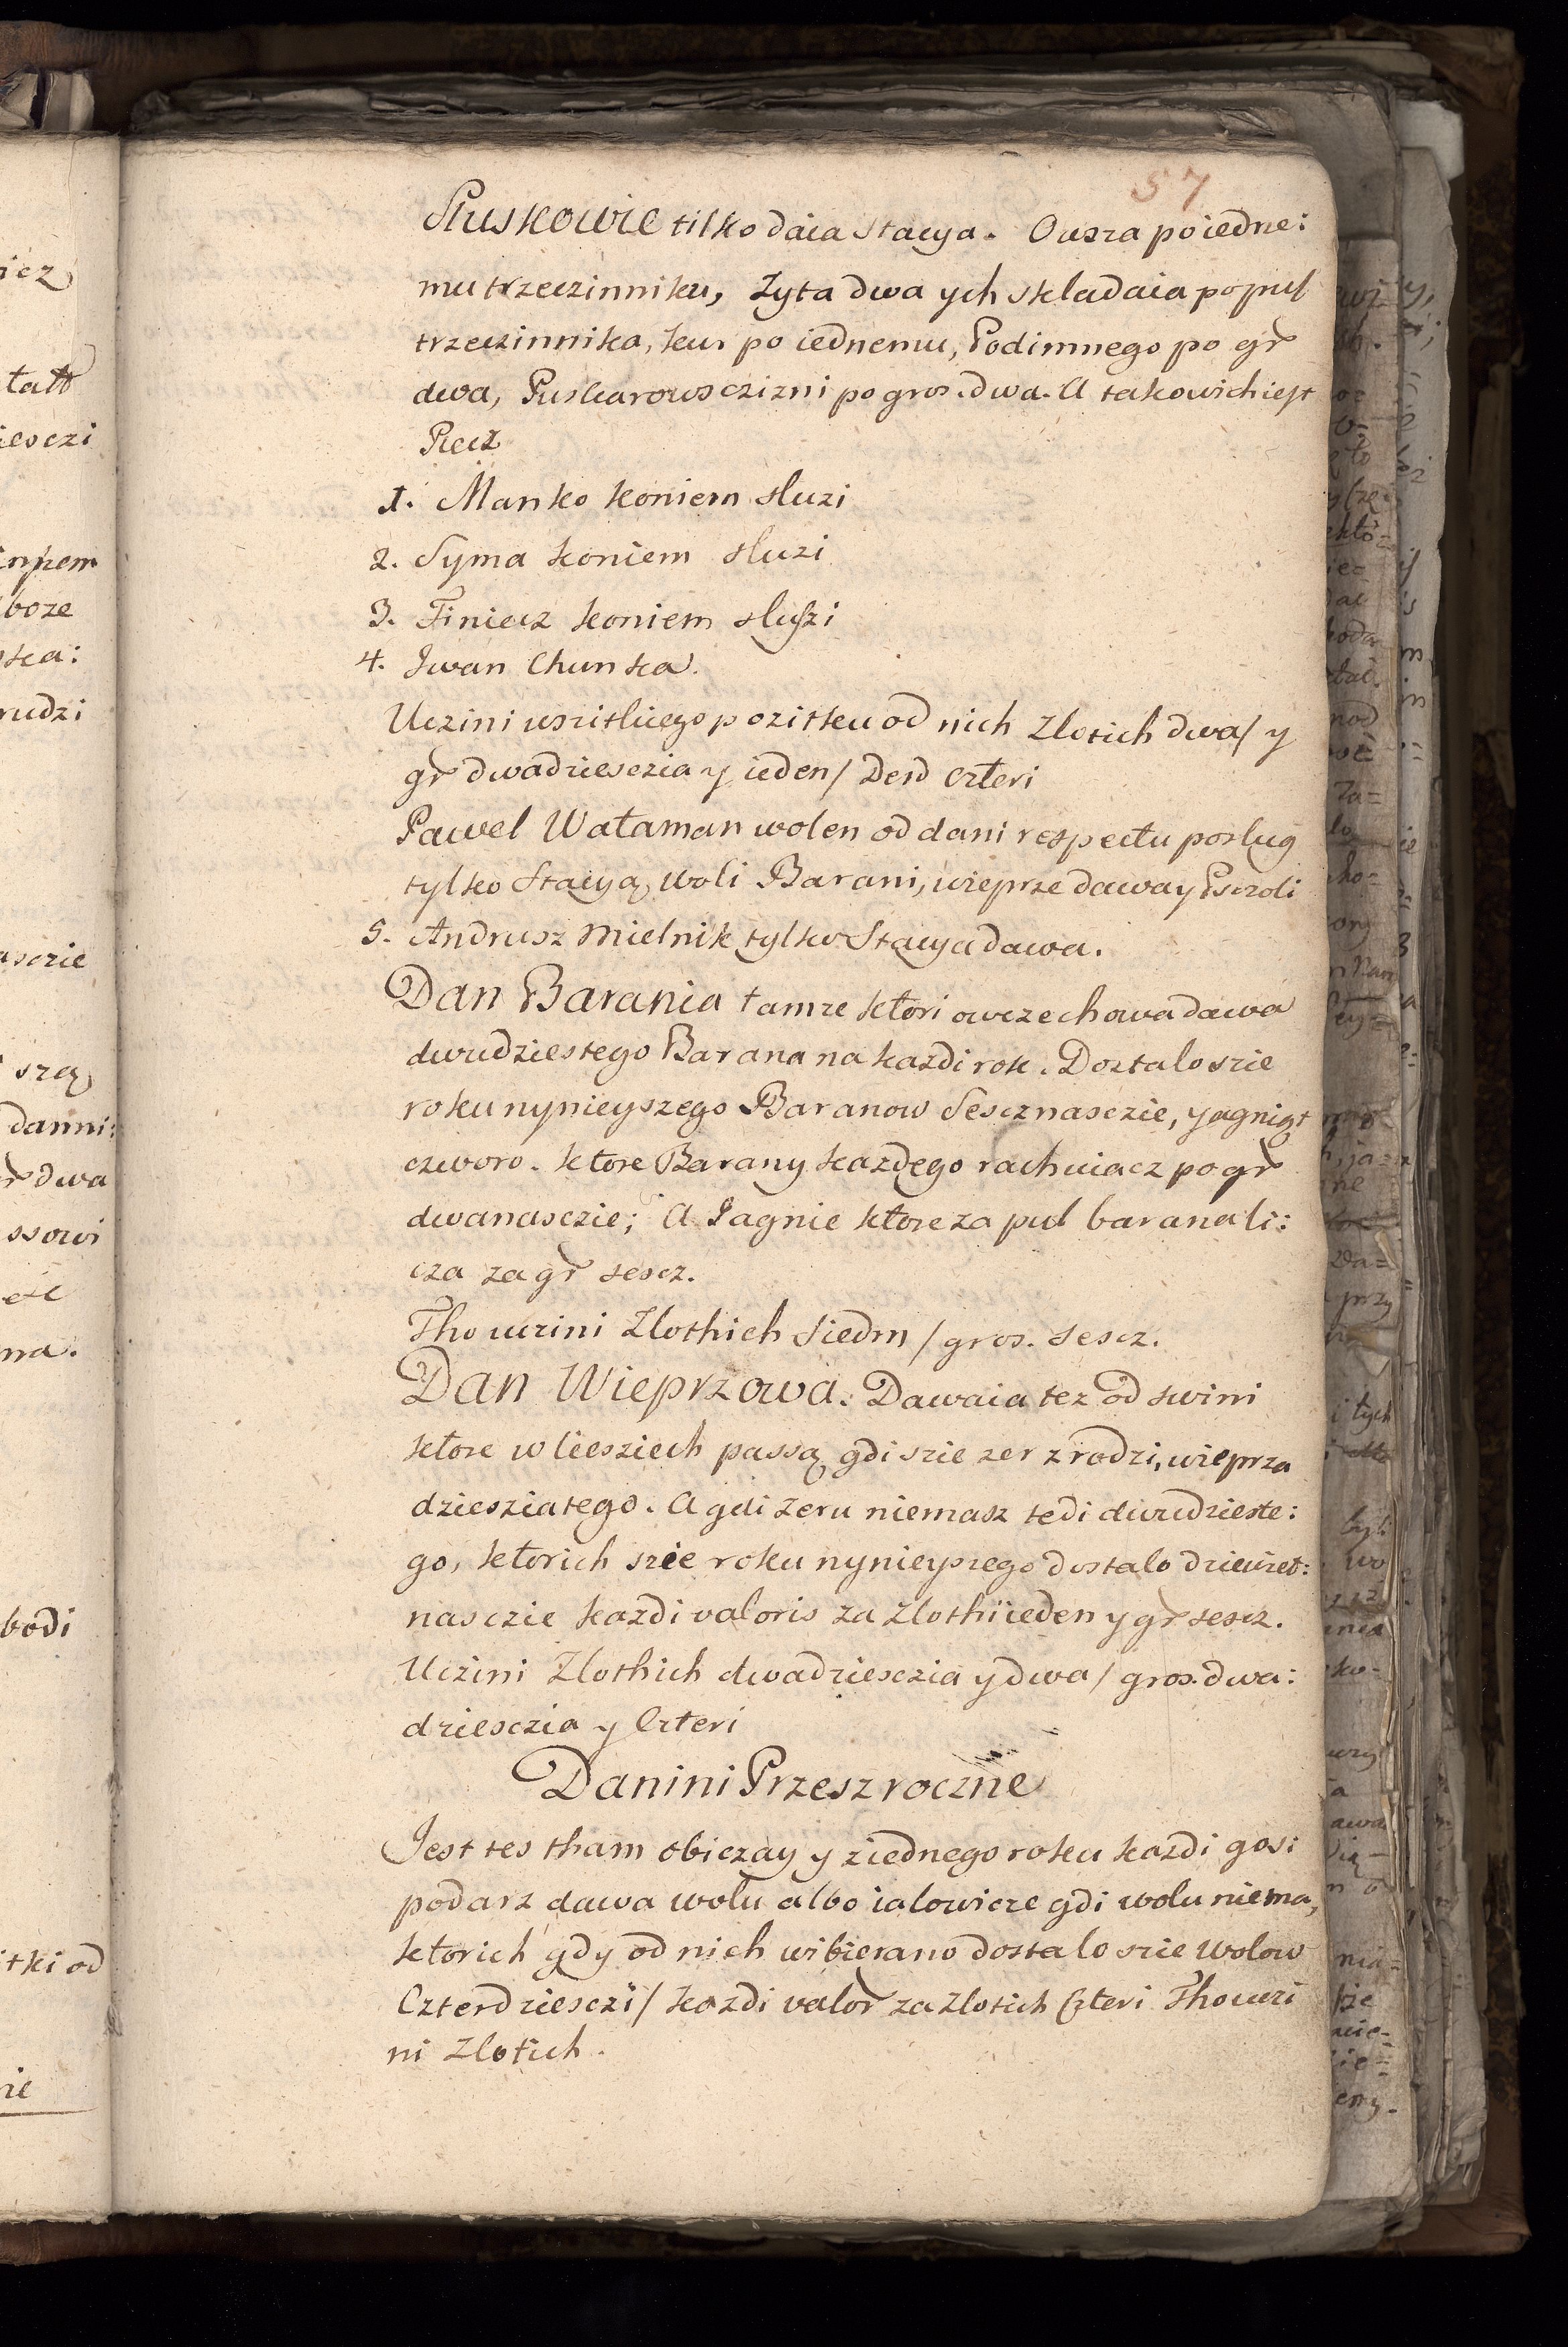 57
Sluskowie tilko daia stacya. Owsza po iedne:
mu trzeczinniku, Zyta dwa ych skladaia popul
trzeczinnika, kur po iednemu, Podimnego po gr
dwa, Puskarowsczizni po gros. dwa. A takowich iest
Piecz
1. Manko koniem sluzi
2. Syma koniem sluzi
3. Finiecz koniem sluszi
4. Iwan Chunka.
Uczini wszitkiego pozitku od nich Zlotich dwa / y
gr dwadziesczia y ieden / Den Czteri
Pawel Wataman wolen od dani respectu poslug
tylko Stacyą, Woli Barani, wieprze dawa y Psczoli
5. Andrusz Mielnik tylko Stacya dawa.
Dan Barania tamze ktori owcze chowa dawa
dwudziestego Barana na kazdi rok. Dostalo szie
roku nynieyszego Baranow Sescznasczie, y agniąt
czworo. ktore Barany kazdego rachuiacz po gr
dwanasczie; A Iagnie ktore za pul barana li:
cza za gr sescz.
Tho uczini Zlothich Siedm / gros. sescz.
Dan Wieprzowa. Dawaia tez od swini
ktore w liesziech passą gdi szie zer zrodzi, wieprza
dziesziatego. A gdi Zeru niemasz tedi dwudzieste:
go, ktorich szie roku nynieyszego dostalo dziewiet:
nasczie kazdi valoris za zlothi ieden y gr sescz.
Uczini Zlothich dwadziesczia y dwa / gros. dwa:
dziesczia y Czteri
Danini Przeszroczne
Jest tes tham obiczay y ziednego roku kazdi gos:
podarz dawa wolu albo ialowicze gdi wolu niema,
ktorich gdy od nich wibierano dostalo szie Wolow
Czterdziesczi / kazdi valor za Zlotich Czteri Tho uczi
ni Zlotich.